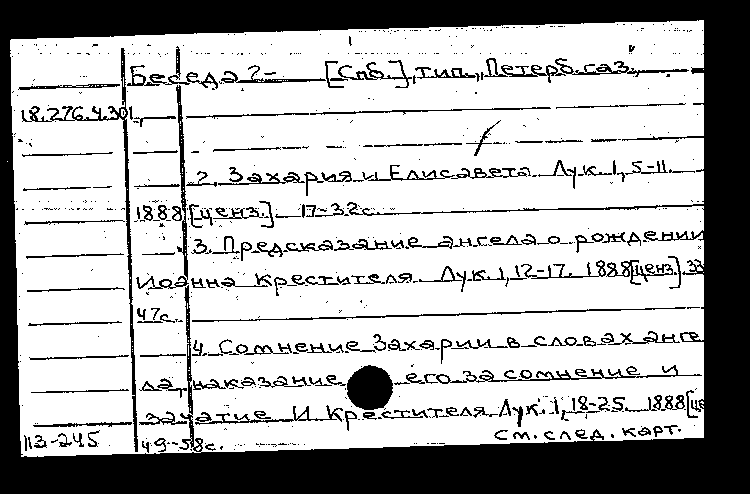 Беседа 2- [Спб.], тип. „Петерб. газ.,
18.276.4.301,
2. Захария и Елисавета. Лук. 1, 5-11.
1888 [ценз.]. 17-32с.
3. Предсказание ангела о рождении
Иоанна Крестителя. Лук. 1, 12-17. 1888 [ценз.]. 33
47с.
4. Сомнение Захарии в словах анге
ла, наказание его за сомнение и
зачатие И Крестителя. Лук. 1, 18-25. 1888 [це
113-245 49-58с. см. след. карт.